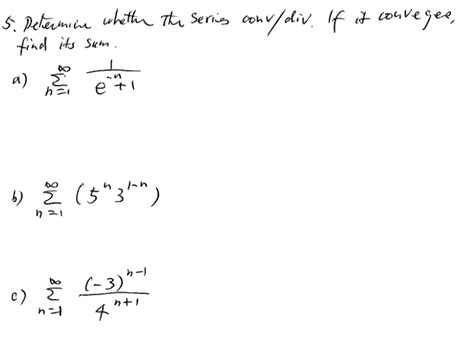 5. Determine whether the series conv/div. If it converges,
find its sum.
a) ∞ Σ n=1 1/(e^-n + 1)
b) ∞ Σ n=1 (5^n 3^1-n)
c) ∞ Σ n=1 (-3)^n-1 / 4^n+1